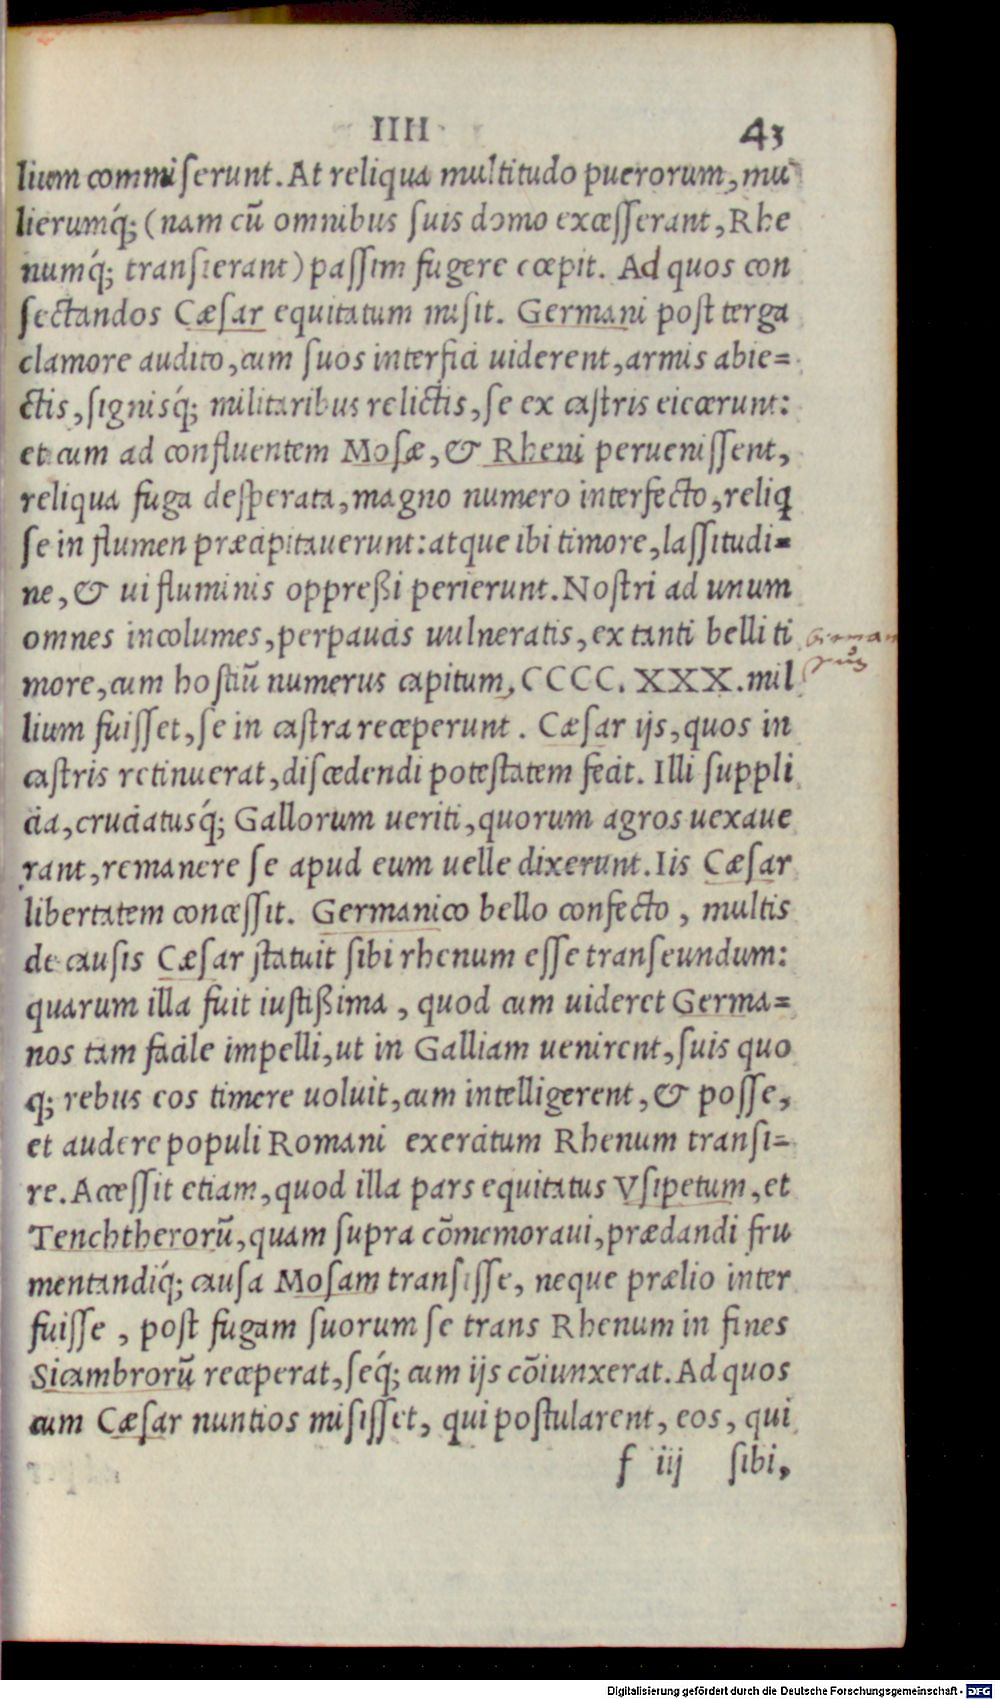 IIII 43
lium commiserunt. At reliqua multitudo puerorum, mu
lierumq́; (nam cū omnibus suis domo excesserant, Rhe
numq́; transierant) passim fugere cœpit. Ad quos con
sectandos Cæsar equitatum misit. Germani post terga
clamore audito, cum suos interfici uiderent, armis abie=
ctis, signisq́; militaribus relictis, se ex castris eiecerunt:
et cum ad confluentem Mosæ, & Rheni peruenissent,
reliqua fuga desperata, magno numero interfecto, reliq
se in flumen præcipitauerunt: atque ibi timore, lassitudi=
ne, & ui fluminis oppreßi perierunt. Nostri ad unum
omnes incolumes, perpaucis uulneratis, ex tanti belli ti
more, cum hostiū numerus capitum, CCCC. XXX. mil
lium fuisset, se in castra receperunt. Cæsar ijs, quos in
castris retinuerat, discedendi potestatem fecit. Illi suppli
cia, cruciatusq́; Gallorum ueriti, quorum agros uexaue
rant, remanere se apud eum uelle dixerunt. Iis Cæsar
libertatem concessit. Germanico bello confecto, multis
de causis Cæsar statuit sibi rhenum esse transeundum:
quarum illa fuit iustißima, quod cum uideret Germa=
nos tam facile impelli, ut in Galliam uenirent, suis quo
q; rebus eos timere uoluit, cum intelligerent, & posse,
et audere populi Romani exercitum Rhenum transi=
re. Accessit etiam, quod illa pars equitatus Vsipetum, et
Tenchtherorū, quam supra cōmemoraui, prædandi fru
mentandiq́; causa Mosam transisse, neque prælio inter
fuisse, post fugam suorum se trans Rhenum in fines
Sicambrorū receperat, seq́; cum ijs cōiunxerat. Ad quos
cum Cæsar nuntios misisset, qui postularent, eos, qui
f iij sibi,
Digitalisierung gefördert durch die Deutsche Forschungsgemeinschaft - DFG